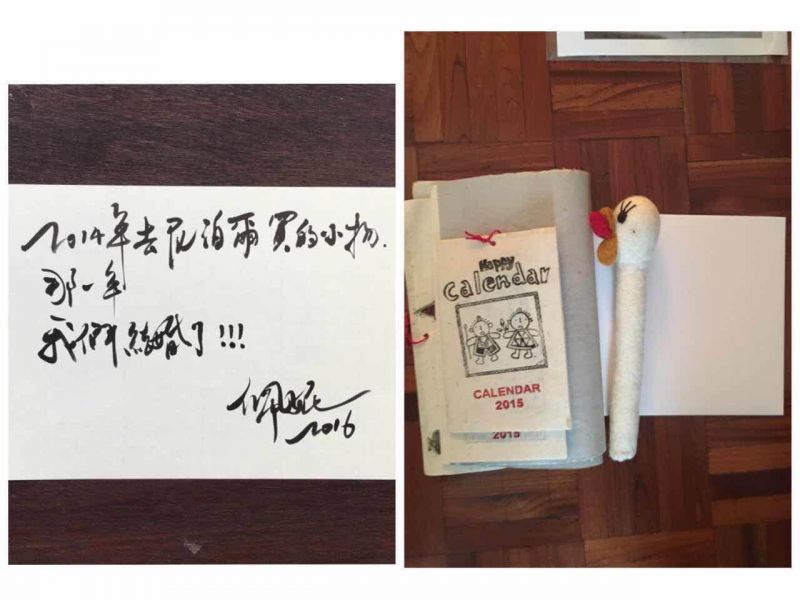 2014年去尼泊爾買的小物.
那一年
我們結婚了!!!
2016
Happy
Calendar
CALENDAR
2015
2015